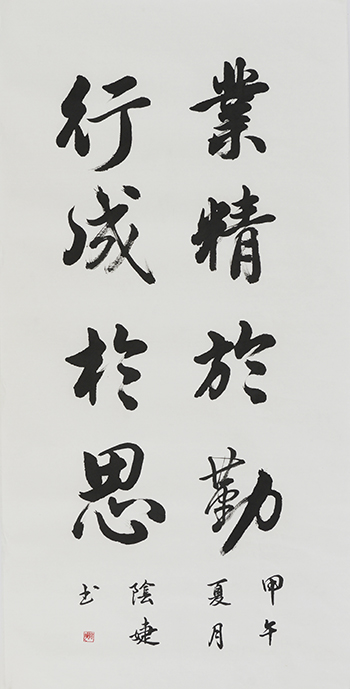 業精於勤
行成於思
甲午
夏月
陰婕
书